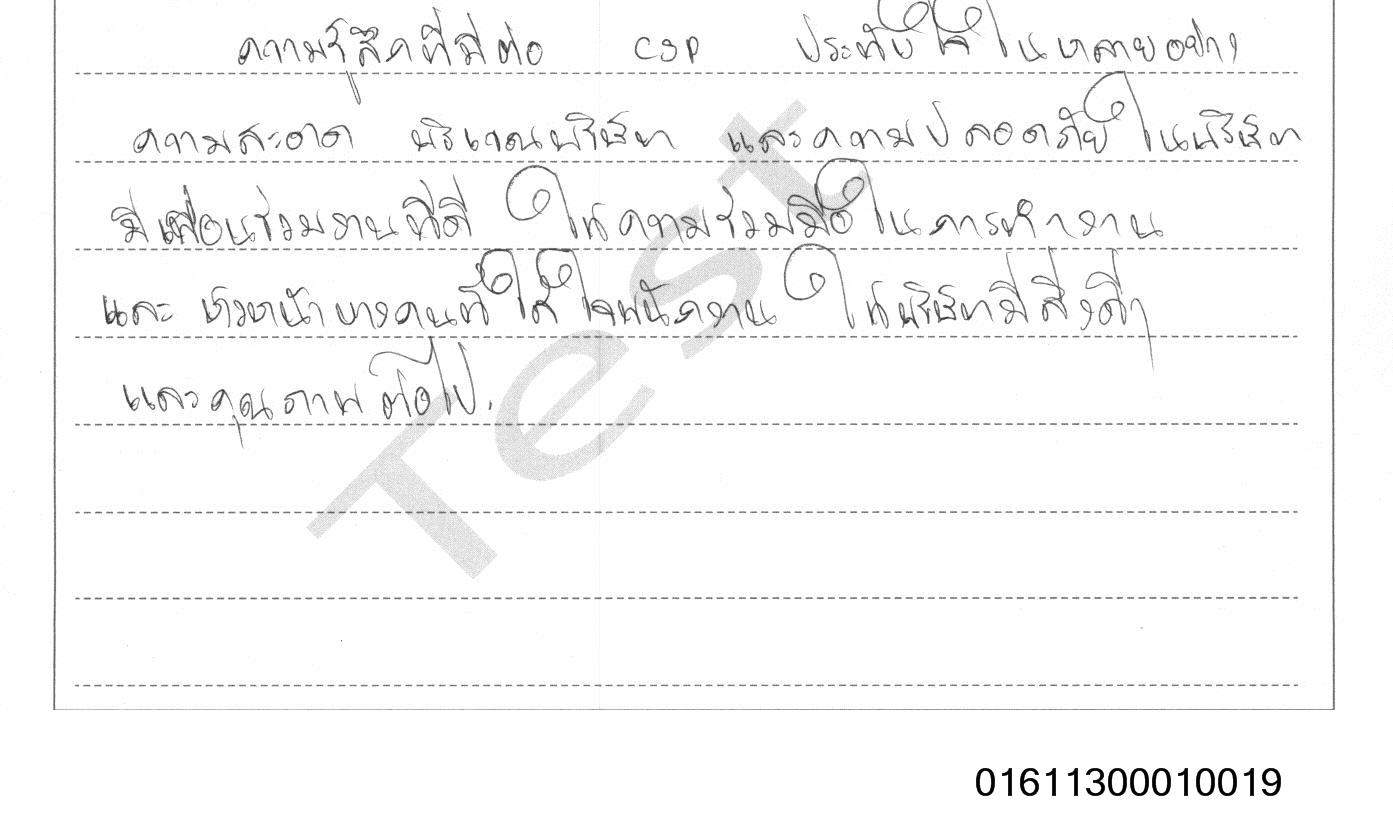 ความรู้สึกที่มีต่อ CSP ประทับใจในหลายอย่าง
ความสะอาด บริเวณบริษัท และความปลอดภัยในบริษัท
มีเพื่อนร่วมงานที่ดี ให้ความร่วมมือในการทำงาน
และ หัวหน้าบางคนที่ใส่ใจพนักงาน ให้บริษัทมีสิ่งดีๆ
และคุณภาพต่อไป.
Test
01611300010019